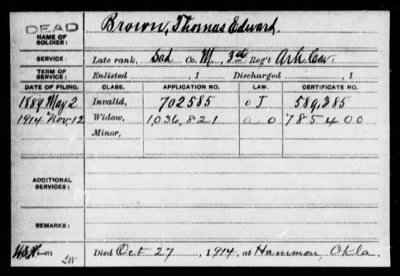 DEAD
NAME OF SOLDIER: Brown, Thomas Edward.
SERVICE: Late rank, Sad Co. M, 3rd Reg't Ark Cav.
TERM OF SERVICE: Enlisted , 1 Discharged , 1
DATE OF FILING. CLASS. APPLICATION NO. LAW. CERTIFICATE NO.
1889 May 2 Invalid, 702585 589,385
1914 Nov. 12 Widow, 1,036,821 785400
Minor,
ADDITIONAL SERVICES:
REMARKS:
Died Oct 27, 1914, at Hammon, Okla.